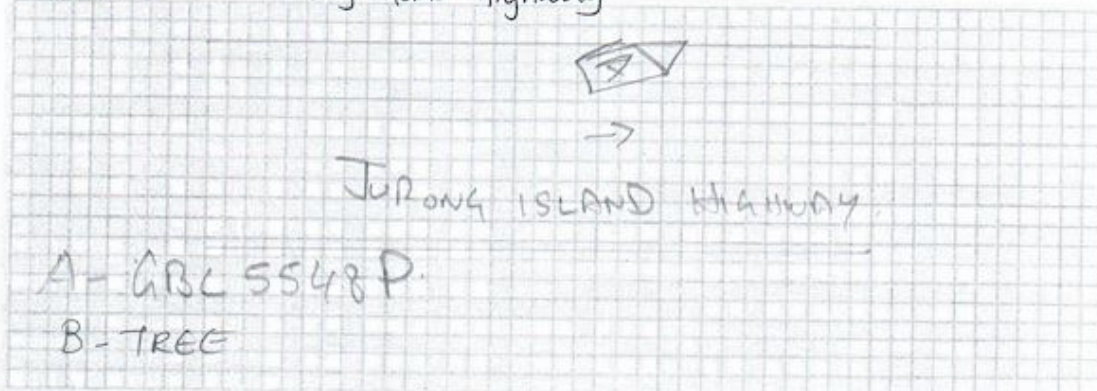 Highway
A
JURONG ISLAND HIGHWAY
A - GBL 5548P.
B - TREE